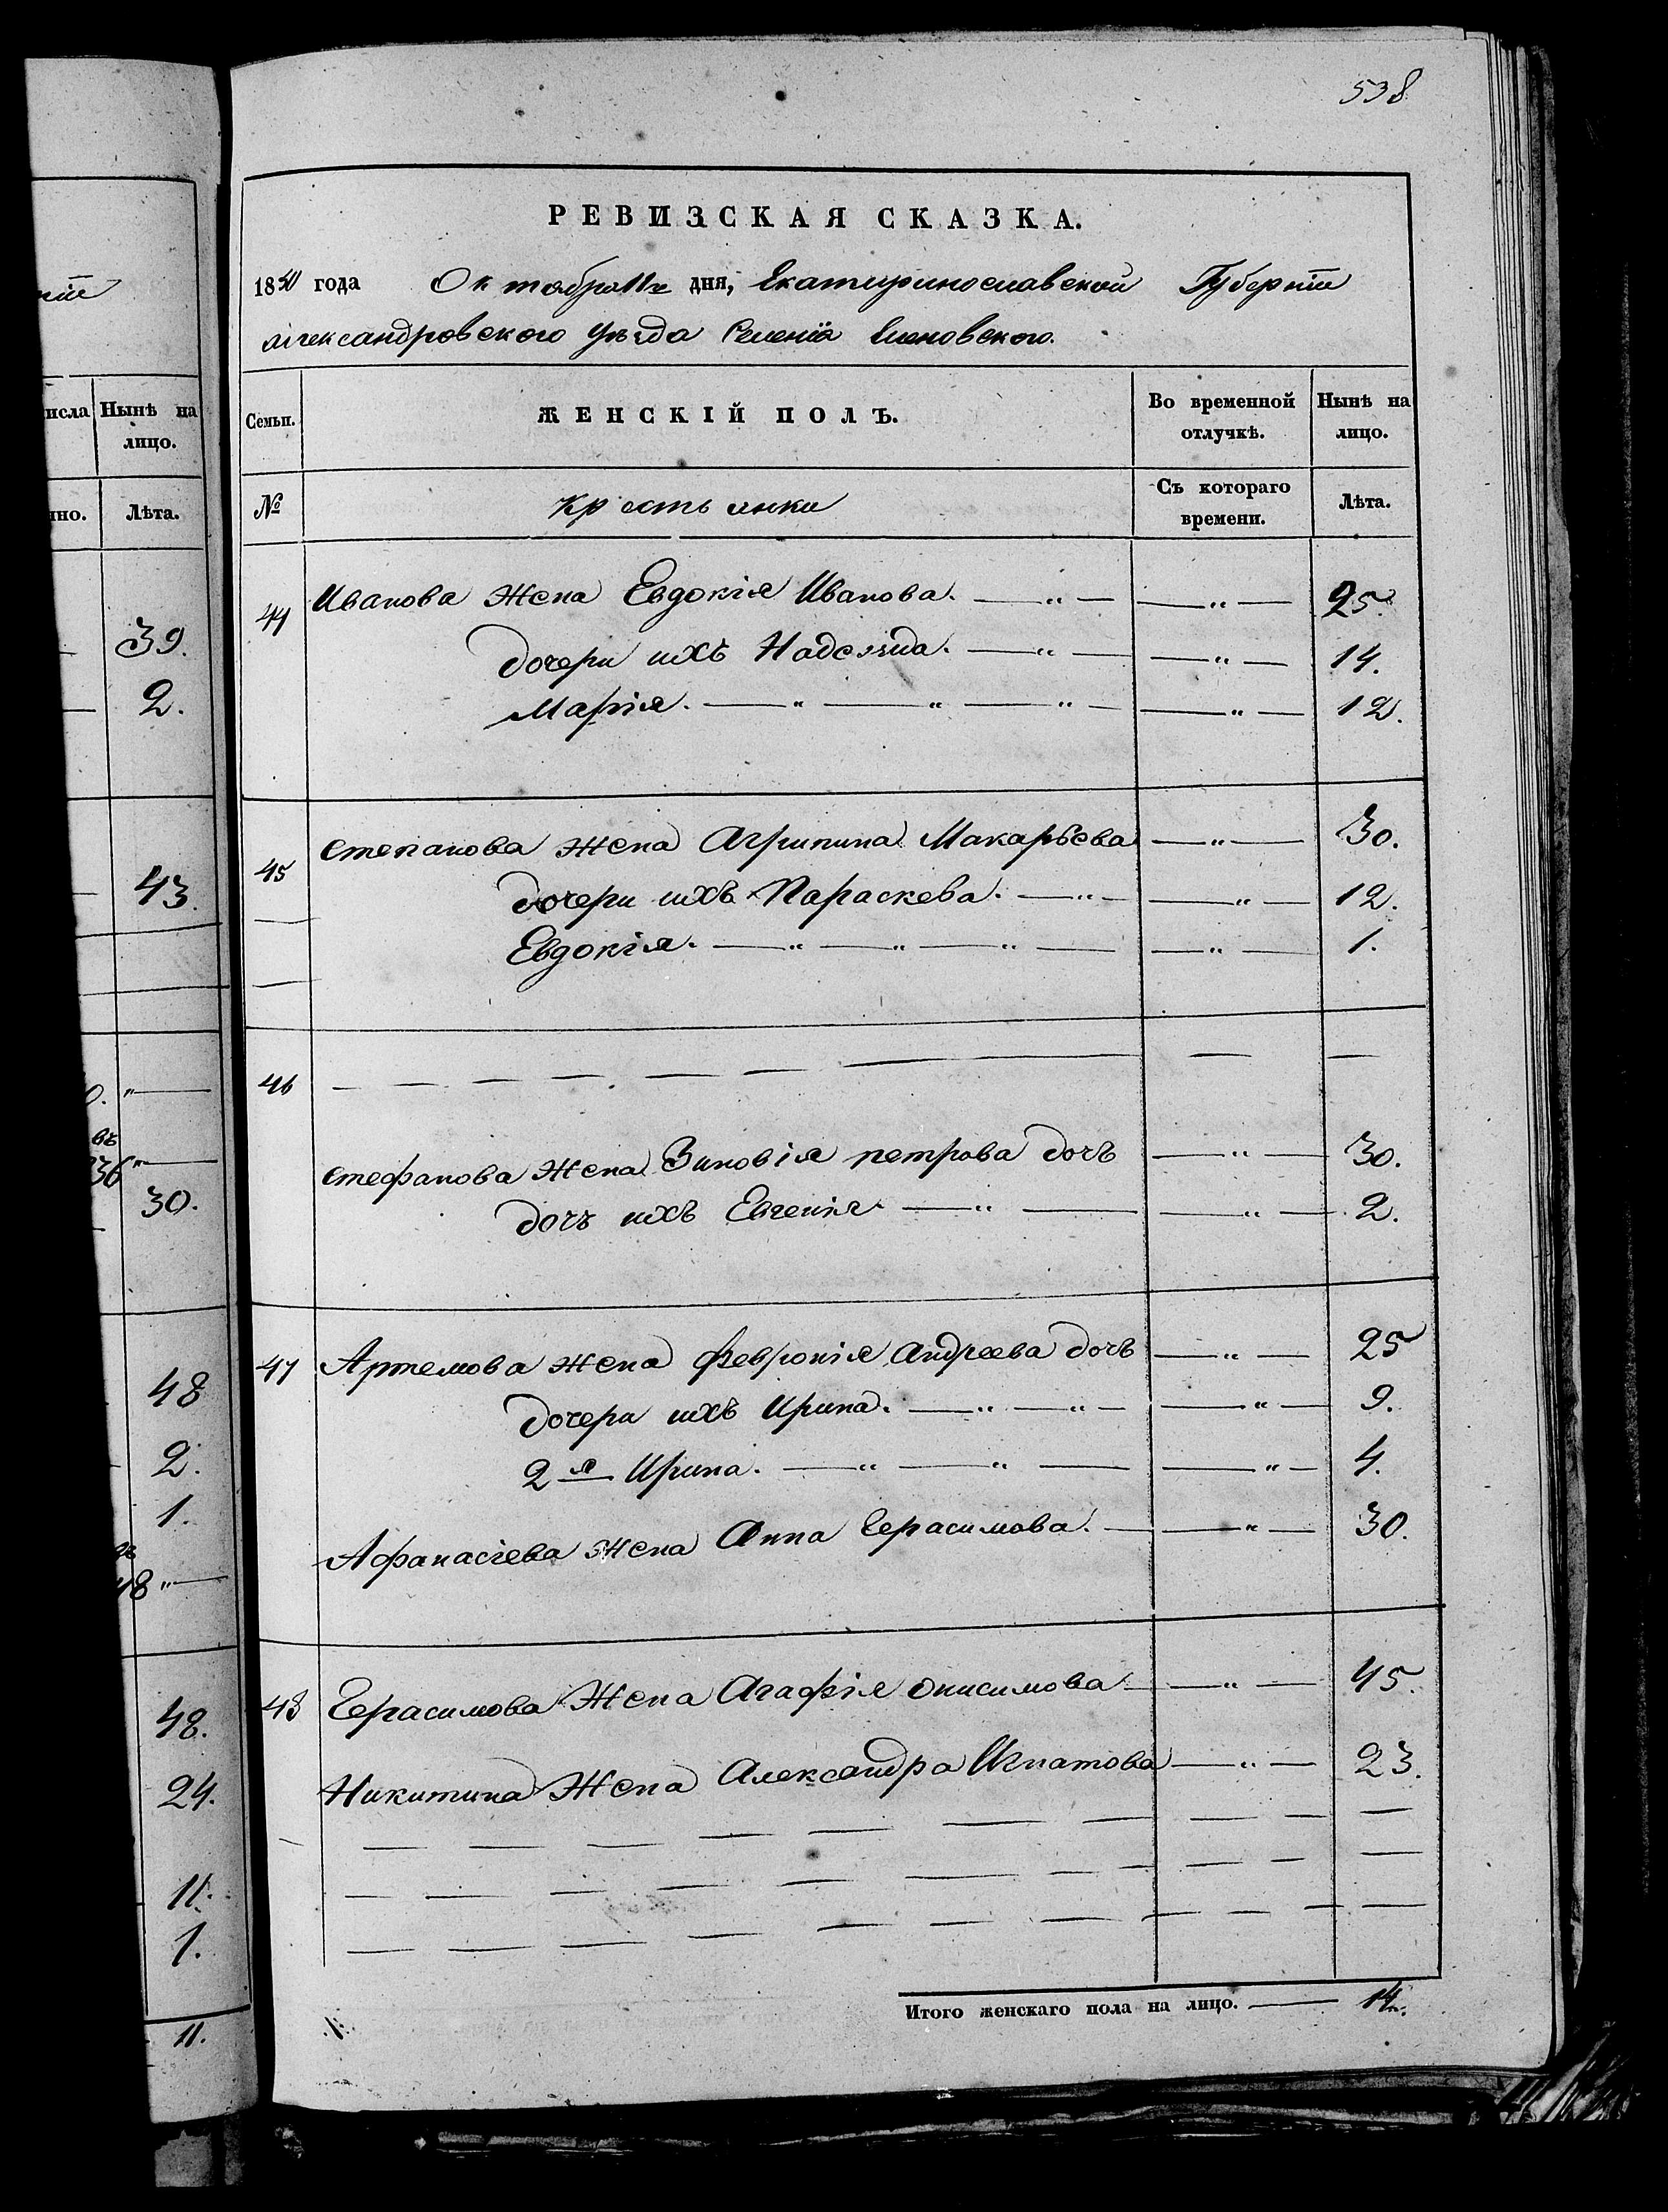 538
РЕВИЗСКАЯ СКАЗКА.
1850 года Октября дня, Екатеринославской Губерніи
Александровского Уѣзда Селенія Еленовского.
Семьи. ЖЕНСКІЙ ПОЛЪ. Во временной отлучкѣ. Нынѣ на лицо.
№ Крестьянки Съ котораго времени. Лѣта.
44 Иванова жена Евдокія Иванова. — „ — — „ — 25.
дочери ихъ Надежда. — „ — — „ — 14.
Марія. — „ — „ — „ — — „ — 12.
45 Степанова жена Агрипина Макарьева — „ — 30.
дочери ихъ Параскева. — „ — — „ — 12.
Евдокія. — „ — „ — „ — — „ — 1.
46 — — — — — — — — — —
Стефанова жена Зиновія петрова дочь — „ — 30.
дочь ихъ Евгенія — „ — — „ — 2.
47 Артемова жена Февронія Андреева дочь — „ — 25
дочери ихъ Ирина. — „ — „ — — „ — 9.
2я Ирина. — „ — „ — — „ — 4.
Афанасіева жена Анна Герасимова. — — „ — 30.
48 Герасимова жена Агафія Онисимова — „ — 45.
Никитина жена Александра Игнатова — „ — 23.
Итого женскаго пола на лицо. — 14.
ніи
исла Нынѣ на лицо.
нно. Лѣта.
39.
2.
43.
0. „ —
въ
36 „ —
30.
48
2.
1.
48 „ —
48.
24.
11.
1.
11.